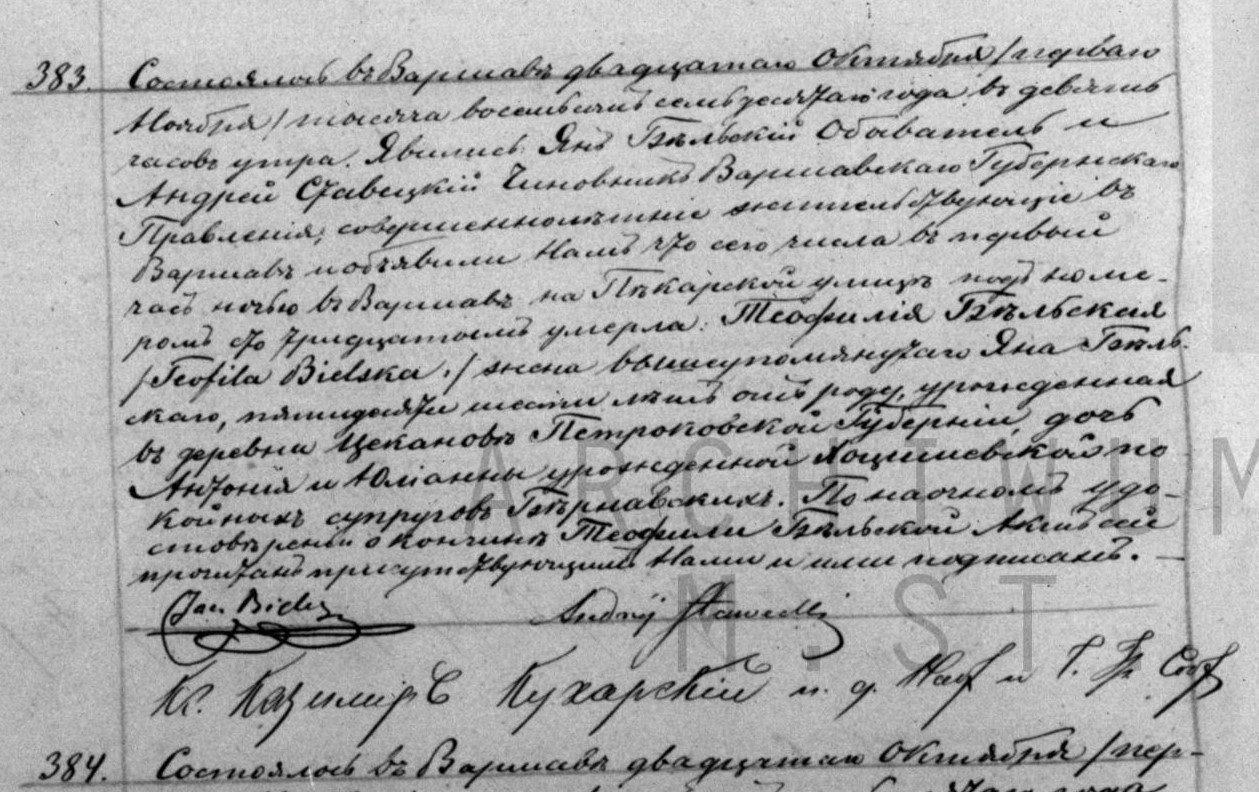 383. Состоялось въ Варшавѣ двадцатаго Октября /перваго
Ноября/ тысяча восемьсотъ семьдесятаго года въ девять
часовъ утра. Явились Янъ Бѣльскій Обыватель и
Андрей Ставецкій Чиновникъ Варшавскаго Губернскаго
Правленія, совершеннолѣтніе жительствующіе въ
Варшавѣ и объявили Намъ что сего числа въ первый
часъ ночью въ Варшавѣ на Пѣкарской улицѣ подъ номе-
ромъ сто тридцатымъ умерла: Теофилія Бѣльская
/Teofila Bielska./ жена вышеупомянутаго Яна Бѣль-
скаго, пятидесяти шести лѣтъ отъ роду, урожденная
въ деревни Цекановѣ Петроковской Губерніи, дочь
Антонія и Юліанны урожденной по
койныхъ супруговъ Бѣрнавскихъ. По наочномъ удо-
стовѣреніи о кончинѣ Теофили Бѣльской. Актъ сей
прочитанъ присутствующимъ Нами и ими подписанъ. —
Jan Andrzej Stawecki
Кс. Казимиръ Кухарскій и. д. Наст и Г. Гр
384. Состоялось въ Варшавѣ двадцатаго Октября /пер-